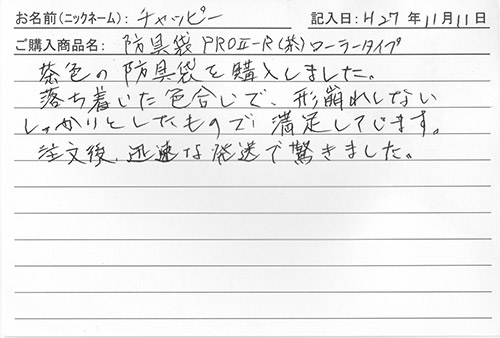 お名前(ニックネーム): チャッピー 記入日: H27年11月11日
ご購入商品名: 防具袋 PROⅡ-R(茶)ローラータイプ
茶色の防具袋を購入しました。
落ち着いた色合いで、形崩れしない
しっかりとしたもので満足しています。
注文後、迅速な発送で驚きました。